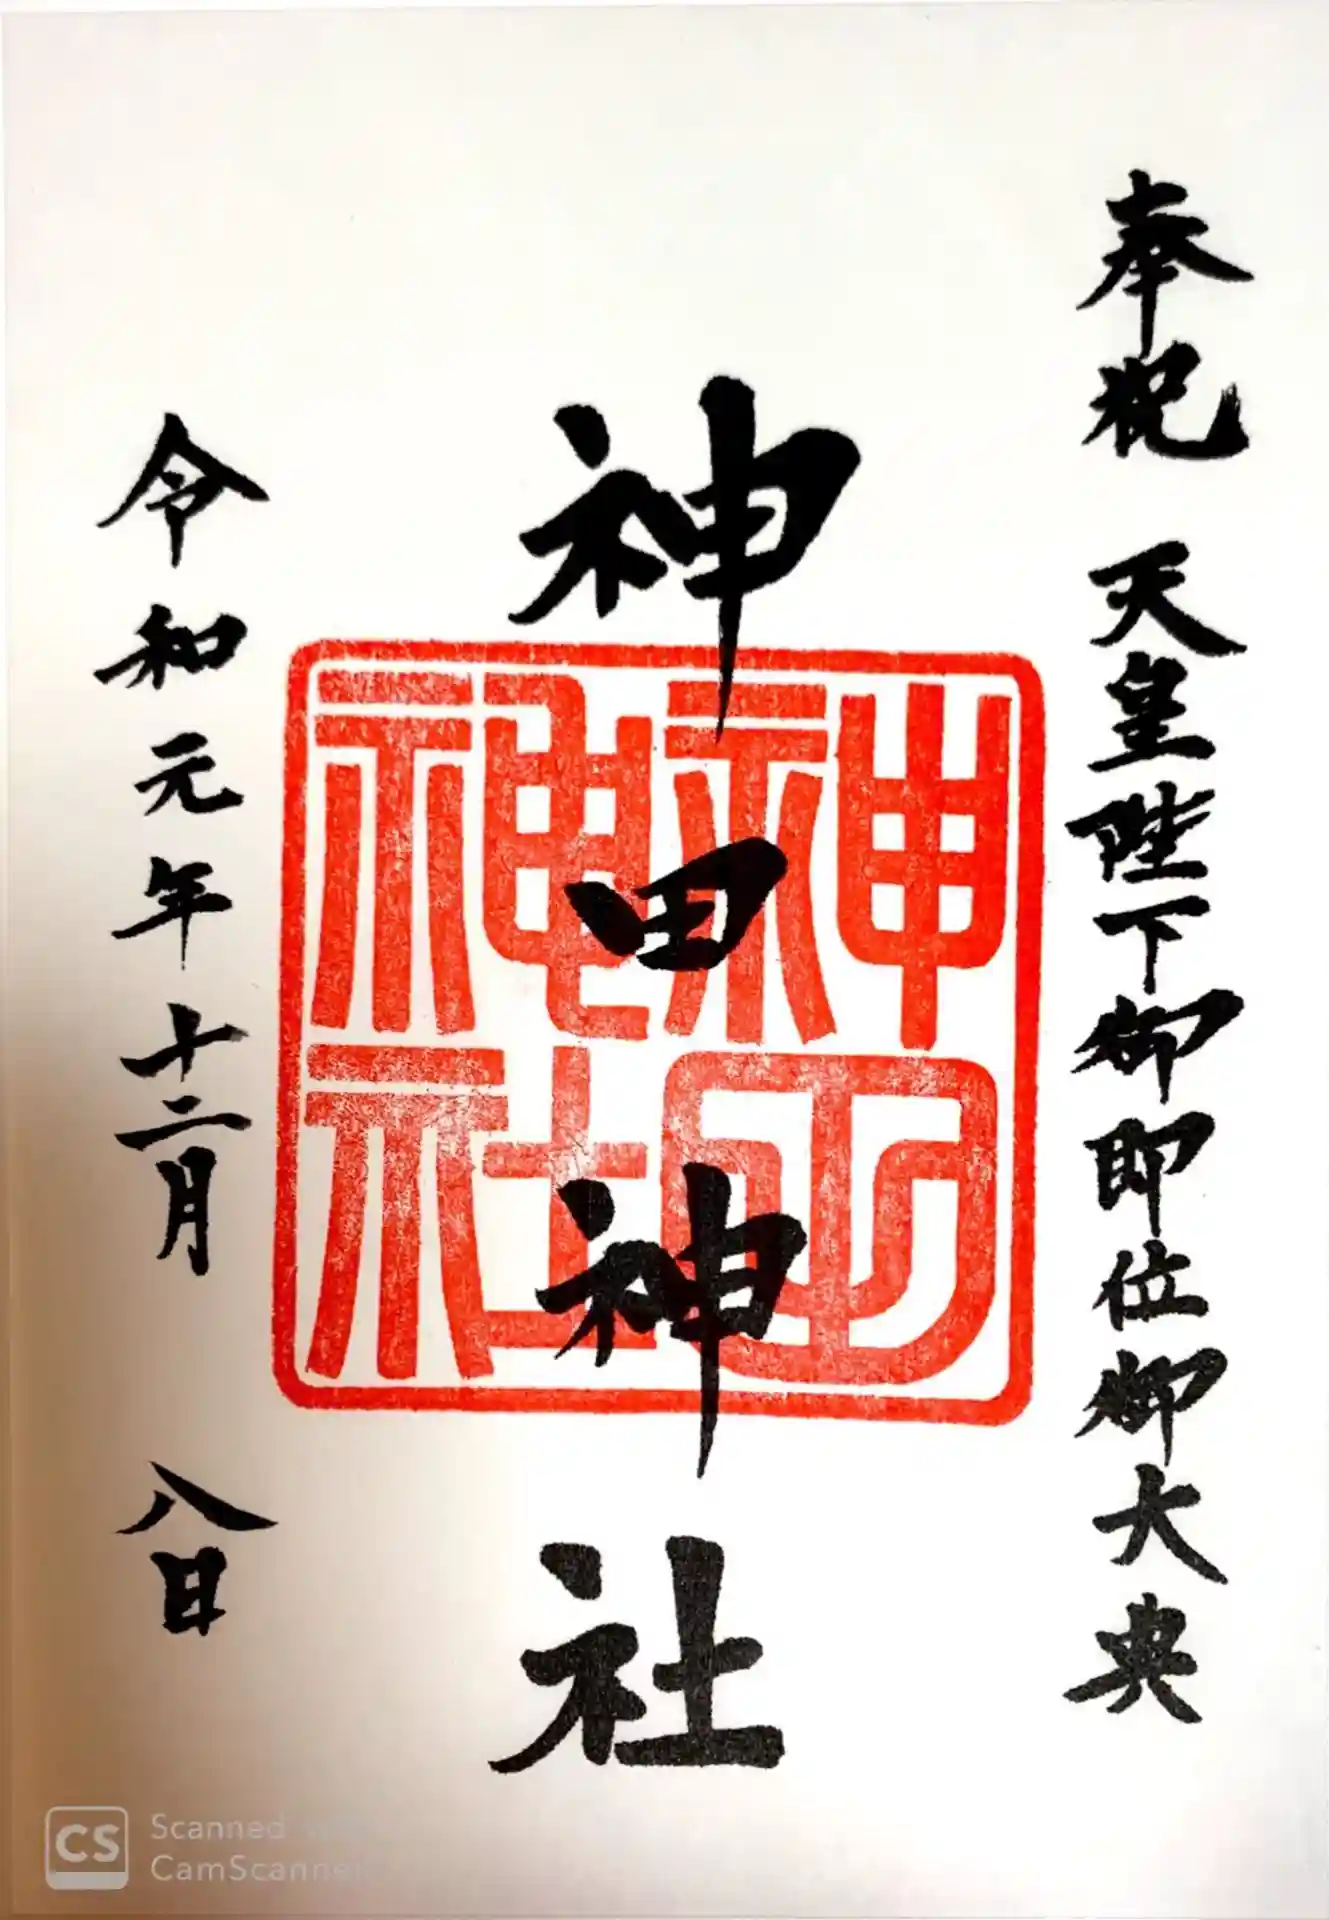 奉祝 天皇陛下御即位御大典
神田神社
神田神社
令和元年十二月 八日
CS
Scanned with
CamScanner